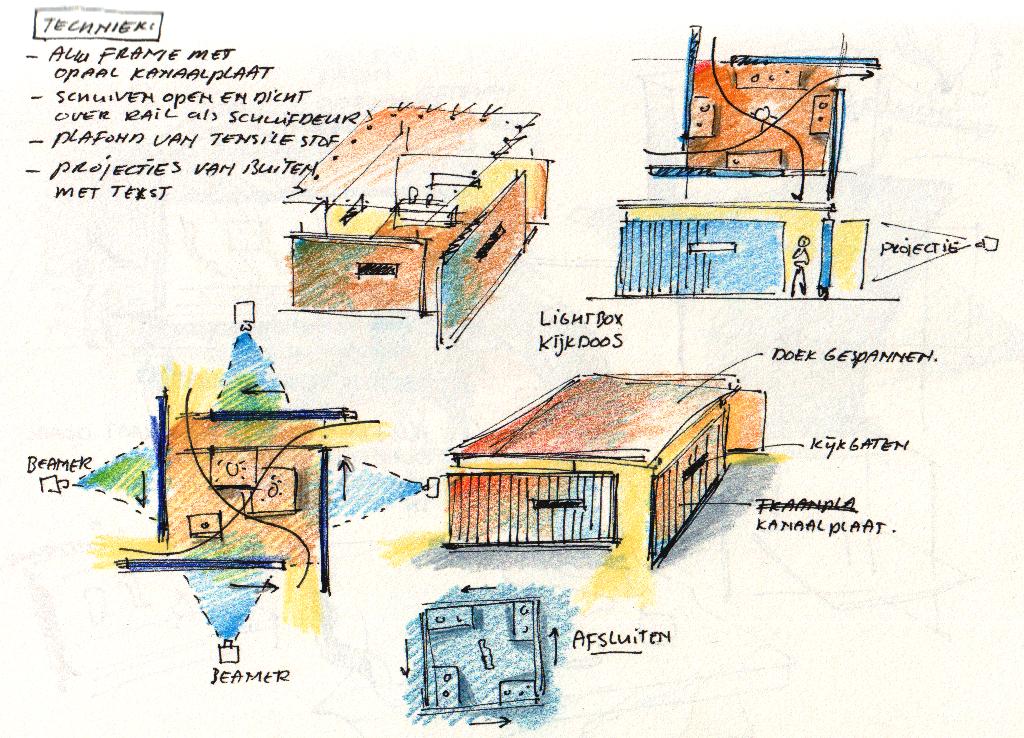 TECHNIEK:
- ALU FRAME MET
OPAAL KANAALPLAAT
- SCHUIVEN OPEN EN DICHT
OVER RAIL ALS SCHUIFDEUR
- PLAFOND VAN TENSILE STOF
- PROJECTIES VAN BUITEN
MET TEKST
PROJECTIE
LIGHTBOX
KIJKDOOS
DOEK GESPANNEN.
KIJKGATEN
KANAALPLAAT.
BEAMER
BEAMER
AFSLUITEN